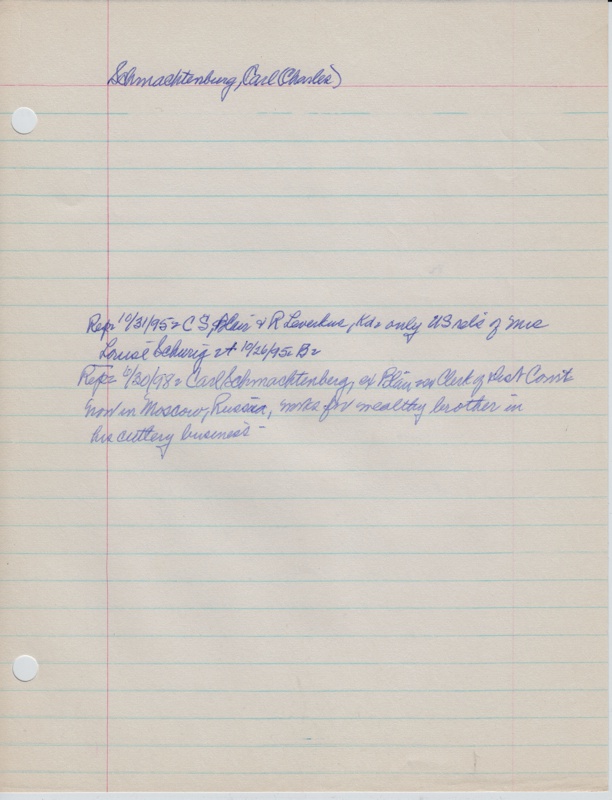 Schmachtenburg, Carl (Charles)
Rep: 10/31/95 = C S, Blair & R Leverkus, Kd = only US rels of Mrs
Louise Schurig at 10/26/95 B =
Rep = /20/98 = Carl Schmachtenberg, ex Blair, ex Clerk of Dist Court
now in Moscow, Russia, works for wealthy brother in
his cutlery business -